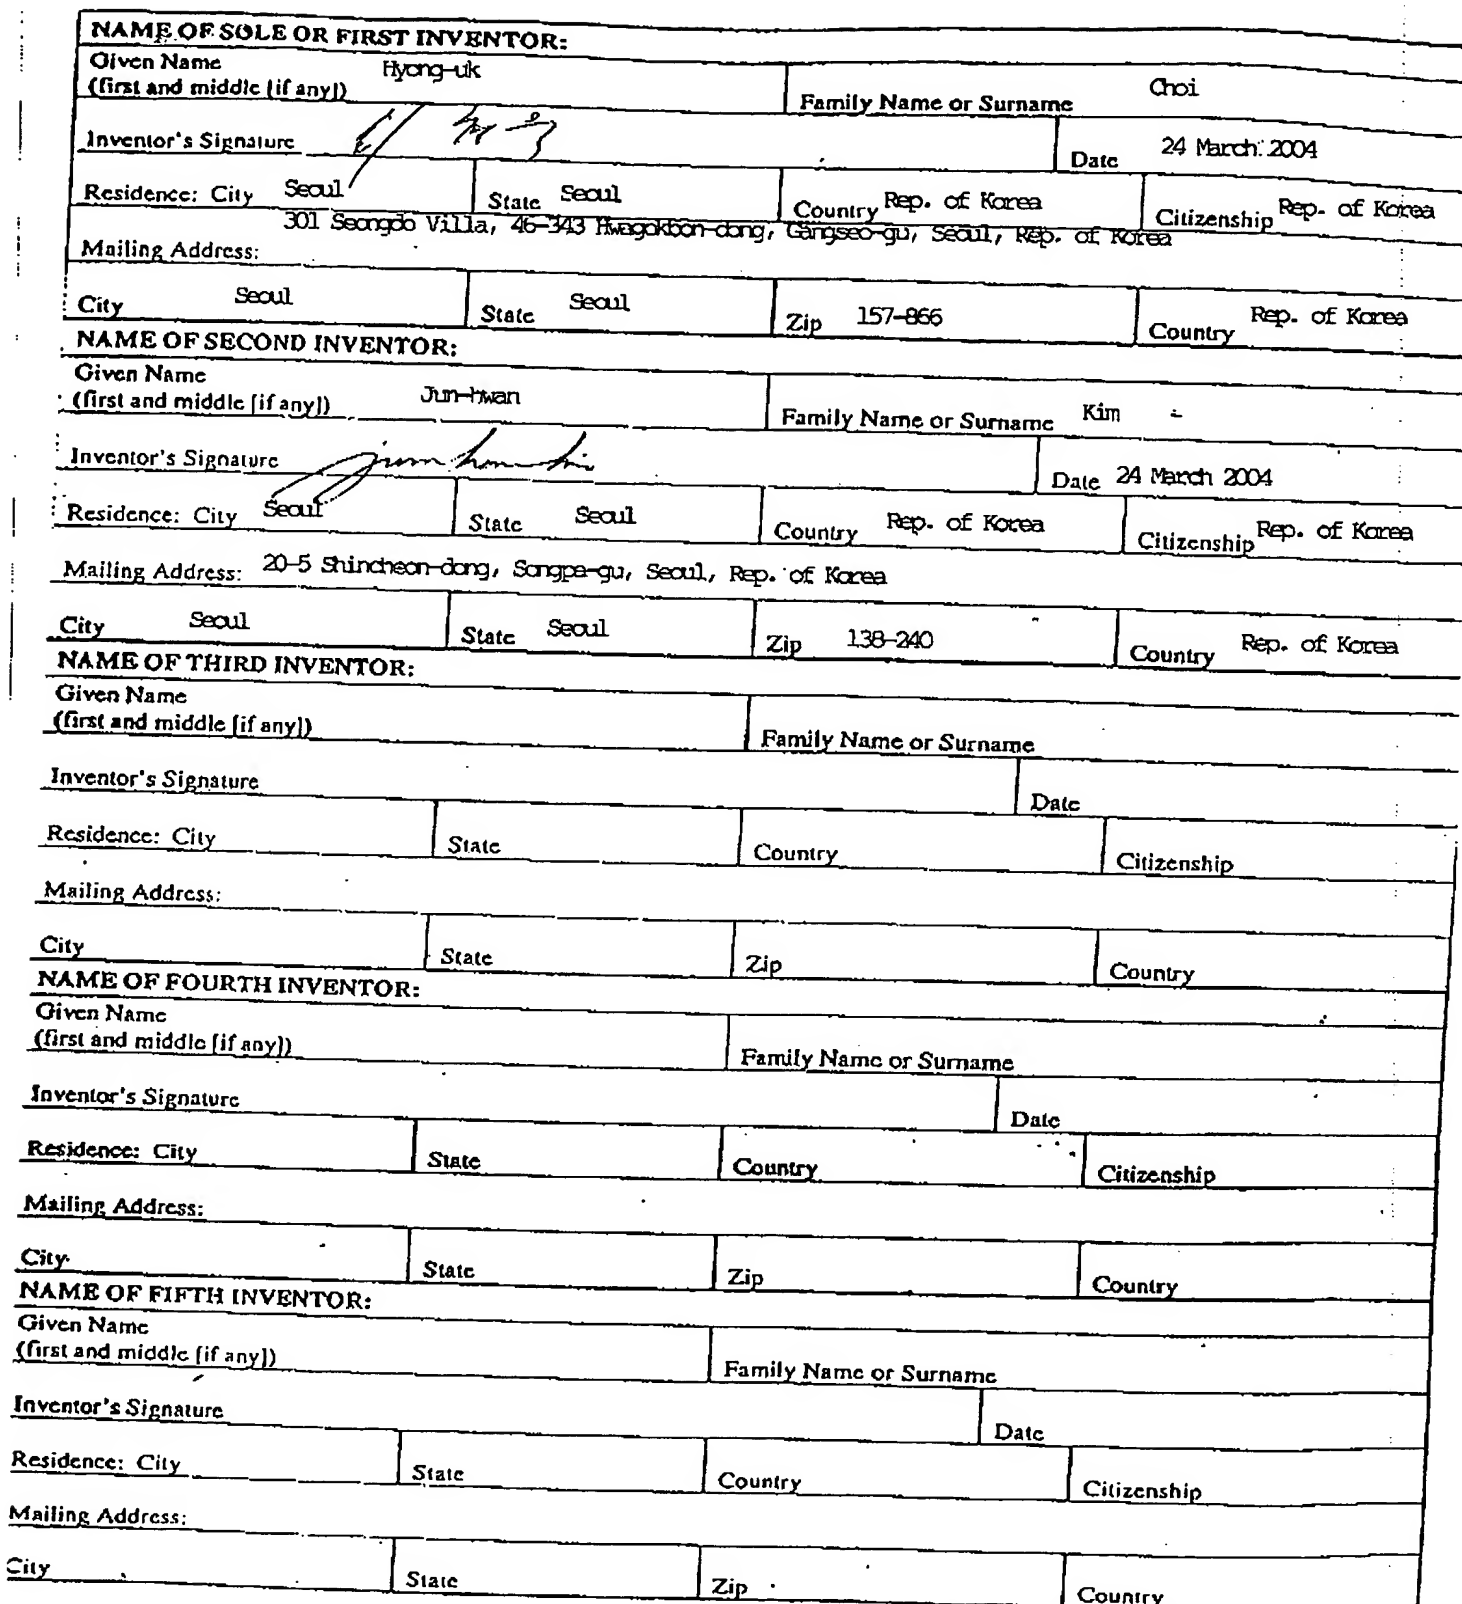 NAME OF SOLE OR FIRST INVENTOR:
Given Name
(first and middle [if any]) Hyong-uk Family Name or Surname Choi
Inventor's Signature Date 24 March 2004
Residence: City Seoul State Seoul Country Rep. of Korea Citizenship Rep. of Korea
301 Seongdo Villa, 46-343 Hwagokbon-dong, Gangseo-gu, Seoul, Rep. of Korea
Mailing Address:
City Seoul State Seoul Zip 157-866 Country Rep. of Korea
NAME OF SECOND INVENTOR:
Given Name
(first and middle [if any]) Jun-hwan Family Name or Surname Kim
Inventor's Signature Date 24 March 2004
Residence: City Seoul State Seoul Country Rep. of Korea Citizenship Rep. of Korea
Mailing Address: 20-5 Shincheon-dong, Songpa-gu, Seoul, Rep. of Korea
City Seoul State Seoul Zip 138-240 Country Rep. of Korea
NAME OF THIRD INVENTOR:
Given Name
(first and middle [if any]) Family Name or Surname
Inventor's Signature Date
Residence: City State Country Citizenship
Mailing Address:
City State Zip Country
NAME OF FOURTH INVENTOR:
Given Name
(first and middle [if any]) Family Name or Surname
Inventor's Signature Date
Residence: City State Country Citizenship
Mailing Address:
City State Zip Country
NAME OF FIFTH INVENTOR:
Given Name
(first and middle [if any]) Family Name or Surname
Inventor's Signature Date
Residence: City State Country Citizenship
Mailing Address:
City State Zip Country